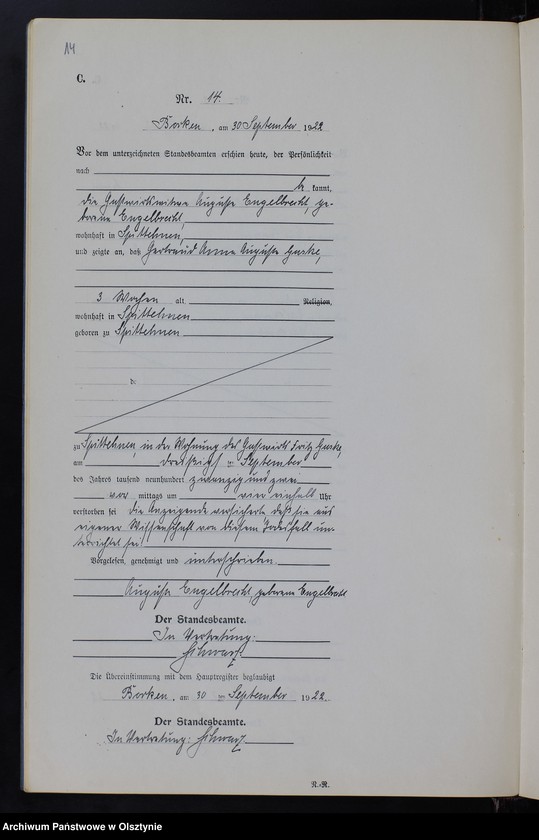 14
C.
Nr. 14.
Borken, am 30 September 1922
Vor dem unterzeichneten Standesbeamten erschien heute, der Persönlichkeit
nach
be kannt,
die Gastwirtswitwe Auguste Engelbrecht, ge-
borene Engelbrecht,
wohnhaft in Spittehnen,
und zeigte an, daß Gertraud Anna Auguste Guske,
3 Wochen alt, Religion,
wohnhaft in Spittehnen
geboren zu Spittehnen
zu Spittehnen, in der Wohnung des Gastwirts Fritz Guske,
am dreißigsten September
des Jahres tausend neunhundert zwanzig und zwei
vor mittags um vier einhalb Uhr
verstorben sei die Anzeigende versicherte daß sie aus
eigener Wissenschaft von diesem Todesfall un-
terrichtet sei!
Vorgelesen, genehmigt und unterschrieben.
Auguste Engelbrecht, geborene Engelbrecht
Der Standesbeamte.
In Vertretung:
Schwarz.
Die Übereinstimmung mit dem Hauptregister beglaubigt
Borken, am 30 ten September 1922.
Der Standesbeamte.
In Vertretung: Schwarz.
Archiwum Państwowe w Olsztynie